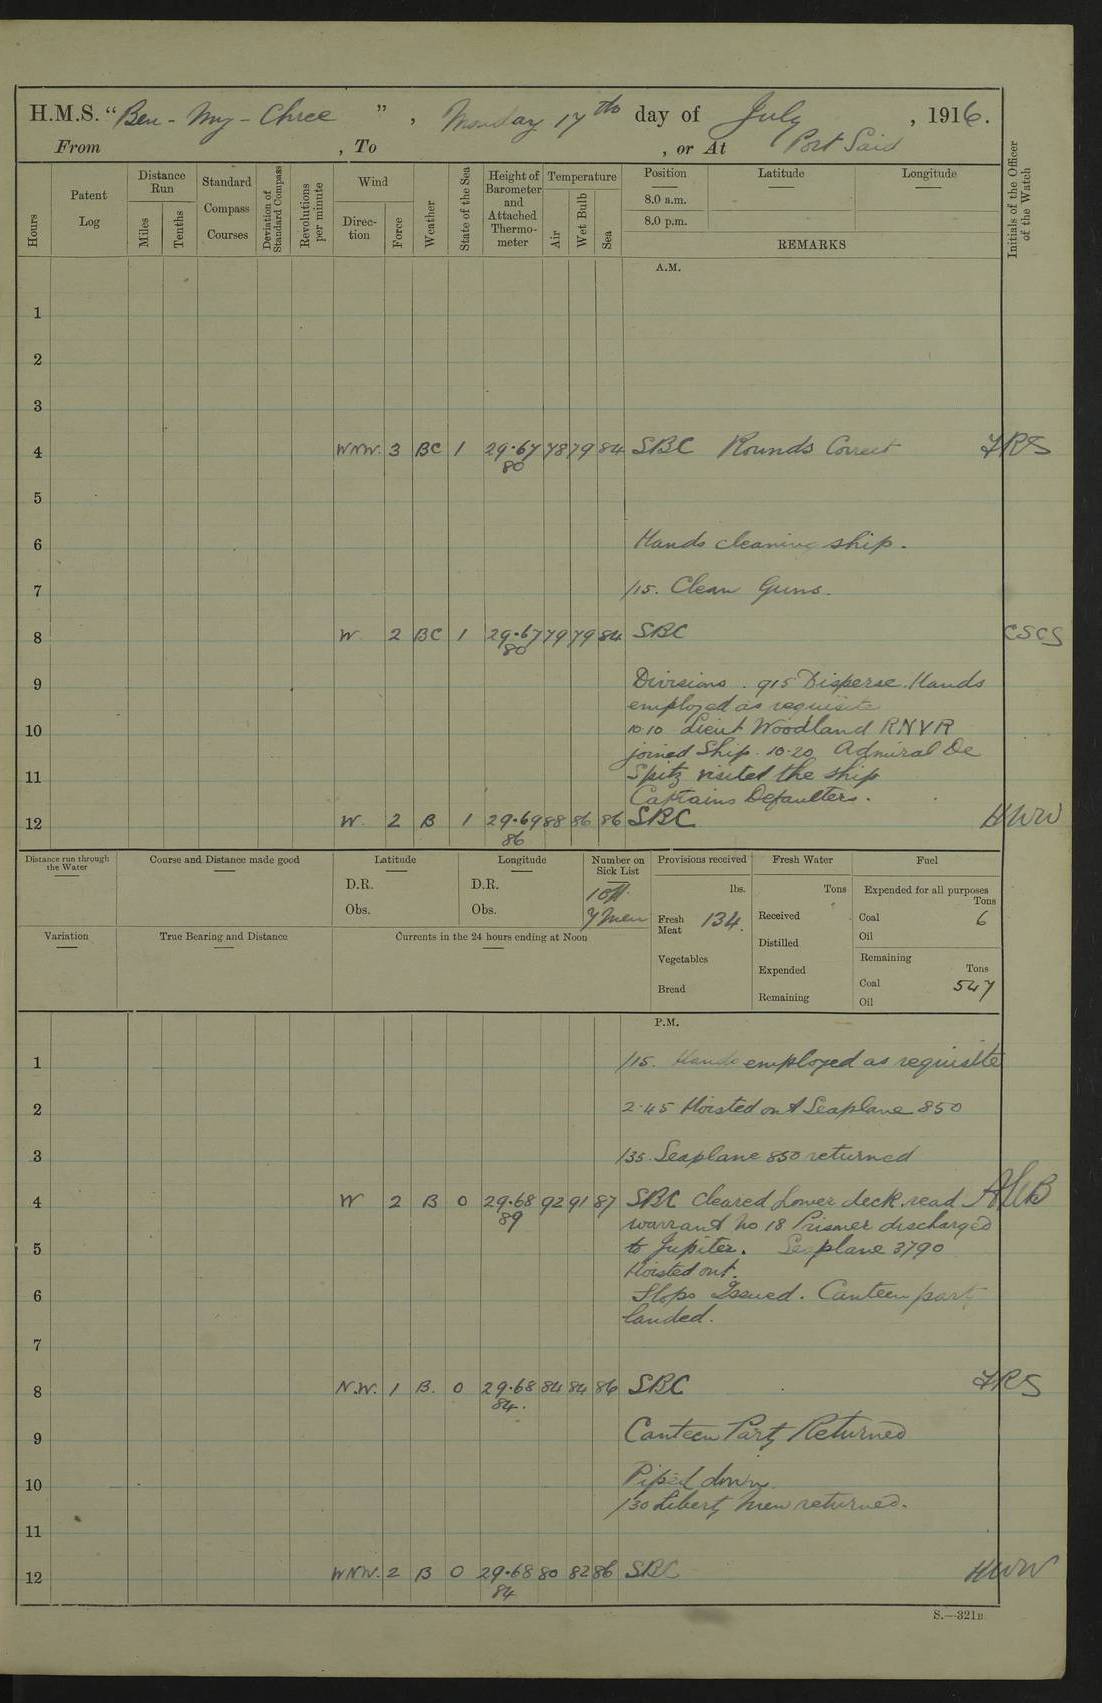 H.M.S. “Ben-my-Chree”, Monday 17th day of July, 1916.
From , To , or At Port Said
Hours
Patent Log
Distance Run
Miles
Tenths
Standard Compass Courses
Deviation of Standard Compass
Revolutions per minute
Wind
Direction
Force
Weather
State of the Sea
Height of Barometer and Attached Thermometer
Temperature
Air
Wet Bulb
Sea
Position Latitude Longitude
8.0 a.m.
8.0 p.m.
REMARKS
Initials of the Officer of the Watch
A.M.
1
2
3
4 WNW. 3 BC 1 29.67 78 79 84 SBC Rounds Correct FRS
80
5
6 Hands cleaning ship.
7 /15. Clean Guns.
8 W 2 BC 1 29.67 79 79 84 SBC CSCS
80
9 Divisions. 915 Disperse. Hands
employed as requisite
10 10.10 Lieut Woodland RNVR
joined Ship. 10.20 Admiral De
11 Spitz visited the ship
Captains Defaulters.
12 W. 2 B 1 29.69 88 86 86 SBC HWW
86
Distance run through the Water
Course and Distance made good
Latitude
D.R.
Obs.
Longitude
D.R.
Obs.
Number on Sick List
1 Off.
7 men
Provisions received
lbs.
Fresh Meat 134.
Vegetables
Bread
Fresh Water
Tons
Received
Distilled
Expended
Remaining
Fuel
Expended for all purposes
Tons
Coal 6
Oil
Remaining
Tons
Coal 547
Oil
Variation
True Bearing and Distance
Currents in the 24 hours ending at Noon
P.M.
1 /15. Hands employed as requisite
2 2.45 Hoisted out Seaplane 850
3 /35. Seaplane 850 returned
4 W 2 B 0 29.68 92 91 87 SBC Cleared Lower deck. read
89
warrant No 18 Prisoner discharged
5 to Jupiter. Seaplane 3790
Hoisted out.
6 Slops Issued. Canteen party
landed.
7
8 N.W. 1 B. 0 29.68 84 84 86 SBC FRS
84.
9 Canteen Party Returned
10 Piped down
/30 Liberty Men returned.
11
12 WNW. 2 B 0 29.68 80 82 86 SBC HWW
84
S.—321B